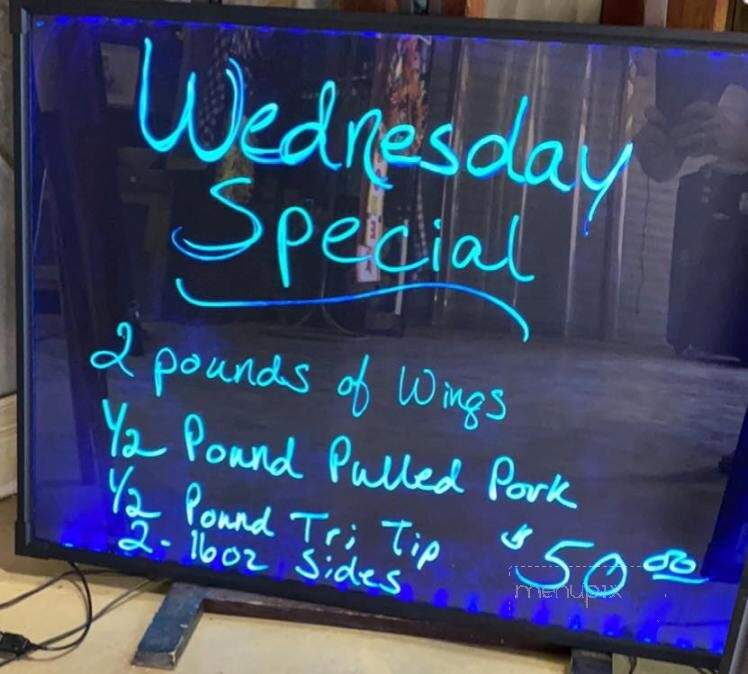 Wednesday
Special
2 pounds of Wings
1/2 Pound Pulled Pork
1/2 Pound Tri Tip
2 - 16oz Sides
$50.00
menupix